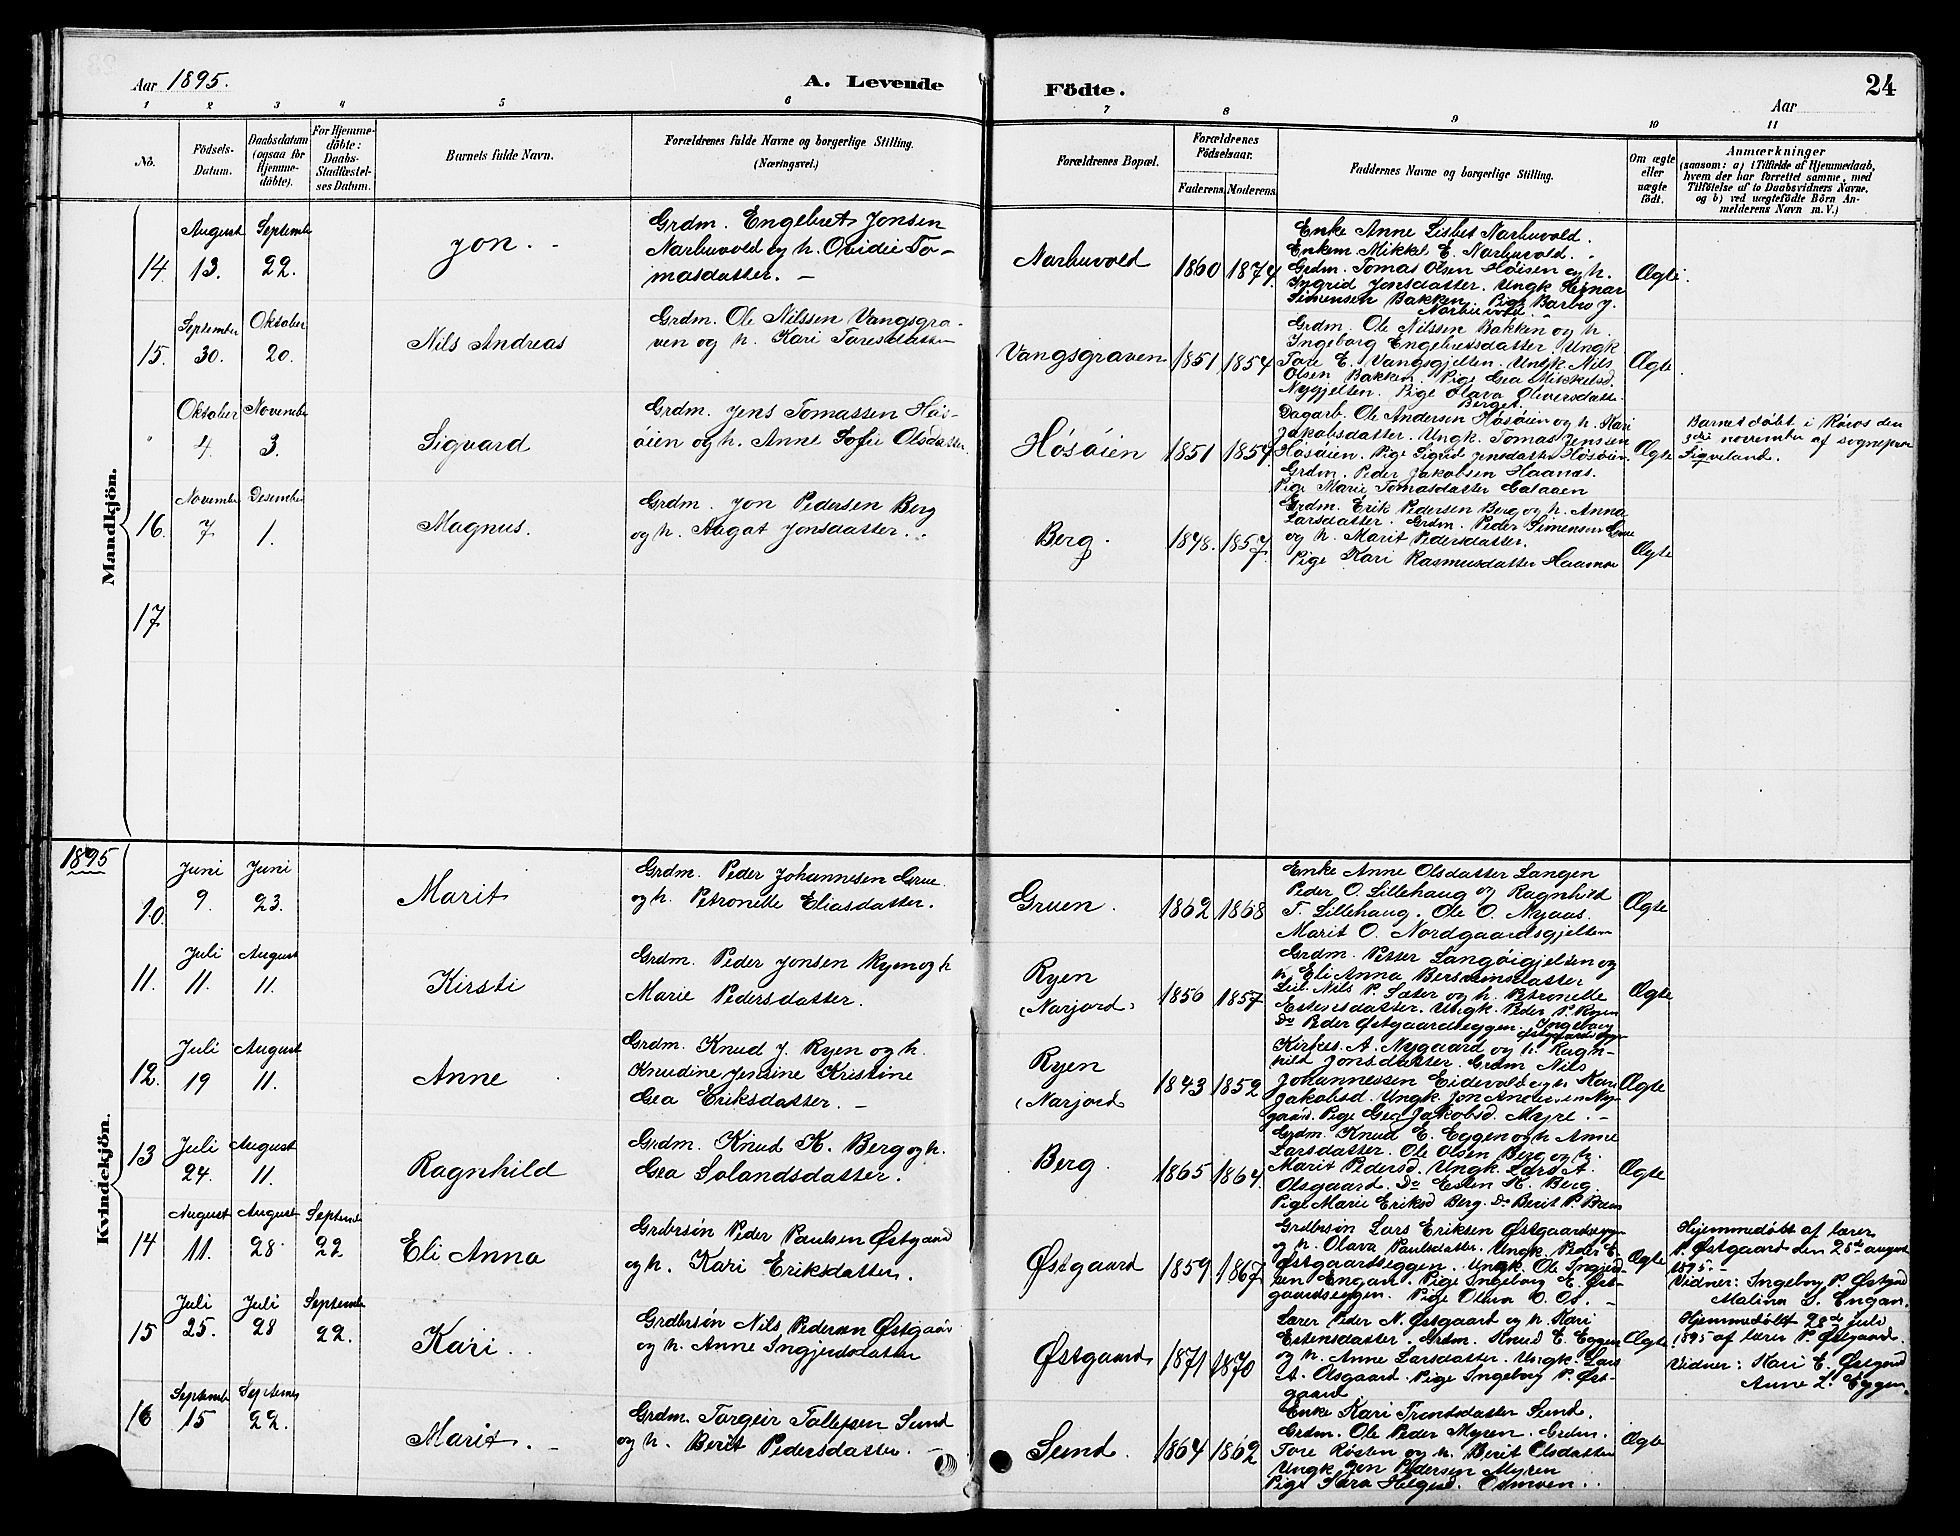 Aar 1895. A. Levende Födte. Aar 24
1 2 3 4 5 6 7 8 9 10 11
No.
Födsels-Datum.
Daabsdatum (ogsaa for Hjemmedöbte).
For Hjemmedöbte: Daabs-Stadfæstelses Datum.
Barnets fulde Navn.
Forældrenes fulde Navne og borgerlige Stilling. (Næringsvei.)
Forældrenes Bopæl.
Forældrenes Födselsaar.
Faderens. Moderens.
Faddernes Navne og borgerlige Stilling.
Om ægte eller uægte födt.
Anmærkninger
(saasom: a) i Tilfælde af Hjemmedaab,
hvem der har forrettet samme, med
Tilföielse af to Daabsvidners Navne.
og b) ved uægtefödte Börn Anmelderens Navn m. V.)
Mandkjön.
14 August 13. September 22. Jon. -
Grdm. Engebret Jonsen
Narbuvold og h. Ovidie To-
masdatter. -
Narbuvold 1860 1874
Enke Anne Lisbet Narbuvold.
Enkem Mikkel E. Narbuvold.
Grdm. Tomas Olsen Høisen og h.
Ingrid Jonsdatter. Ungk
Simensen Bakken. Pige Barbro J.
Narbuvold.
Ægte
15. September 30. Oktober 20. Nils Andreas
Grdm. Ole Nilssen Vangsgra-
ven og h. Kari Toresdatter
Vangsgraven 1851 1854
Grdm. Ole Nilssen Bakken og h.
Ingeborg Engebretsdatter. Ungk
Tore E. Vangsgjelten. Ungk. Nils
Olsen Bakken. Pige Gea Mikkelsd.
Nygjelten. Pige Olava Oliversdatter
Berget.
Ægte
" Oktober 4. November 3. Sigvard
Grdm. Jens Tomassen Høs-
øien og h. Anne Sofie Olsdatter.
Høsøien 1851 1857
Dagarb. Ole Andersen Høsøien og h. Kari
Jakobsdatter. Ungk. Tomas Jenssen
Høsøien. Pige Sigrid Jensdatter Høsøien
Grdm. Peder Jakobsen Haanes.
Pige Marie Tomasdatter
Ægte
Barnet døbt i Røros den
3die november af sognepr
Sigveland.
16. November 7 Desember 1. Magnus.
Grdm. Jon Pedersen Berg
og h. Aagat Jonsdatter.
Berg. 1848. 1857
Grdm. Erik Pedersen Berg og h. Anna
Larsdatter. Grdm. Peder Simensen Grue
og h. Marit Pedersdatter.
Pige Kari Rasmusdatter
Ægte
17
1895
Kvindekjön.
10. Juni 9. Juni 23. Marit
Grdm. Peder Johannesen Grue
og h. Petronelle Eliasdatter.
Gruen. 1862 1868
Enke Anne Olsdatter Langen
Peder O. Lillehaug og Ragnhild
T. Lillehaug. Ole O. Nyaas.
Marit O. Nordgaardsgjelten
Ægte
11. Juli 11. August 11. Kirsti
Grdm. Peder Jonsen Ryen og h
Marie Pedersdatter.
Ryen
(Narjord) 1850 1857
Grdm. Petter Langøigjelten og
h. Eli Anna Bersvensdatter
Nils P. Sæter og h. Petronelle
Estensdatter. Ungk. Peder P. Ryen
Do Peder Østgaardseggen. Ingeborg
Østgaardseggen
Ægte
12. Juli 19 August 11. Anne
Grdm. Knud J. Ryen og h.
Knudine Jensine Kristine
Gea Eriksdatter. -
Ryen
(Narjord) 1843 1852
Kirkes. A. Nygaard og h. Ragn-
hild Jonsdatter. Grdm Nils
Johannessen Eidevold og h Kari
Jakobsd. Ungk. Jon Andersen Ny-
gaard. Pige Gea Jakobsd. Myre. -
Ægte
13 Juli 24. August 11. Ragnhild
Grdm. Knud K. Berg og h.
Gea Solandsdatter.
Berg. 1865 1864
Grdm. Knud E. Eggen og h Anne
Larsdatter. Ole Olsen Berg og h.
Marit Pedersd. Ungk. Lars A.
Olsgaard. Do Esten K. Berg.
Pige Marie Eriksd Berg. Do Berit P.
Ægte
14 August 11. August 28. September 22 Eli Anna
Grdbrsøn Peder Paulsen Østgaard
og h. Kari Eriksdatter.
Østgaard 1859 1867
Grdbrsøn Lars Eriksen Østgaardseggen
og h. Olava Paulsdatter. Ungk. Peder E.
Østgaardseggen. Ungk. Ole Ingjeld-
sen Engan. Pige Ingeborg E. Øst-
gaardseggen. Pige Olava O. Os. -
Ægte
Hjemmedøbt af lærer
P. Østgaard den 25de august
1895.-
Vidner: Ingeborg P. Østgaard
Malina S. Engan.
15 Juli 25. Juli 28 September 22. Kari.
Grdbrsøn Nils Pedersen Østgaard
og h. Anne Ingjeldsdatter
Østgaard 1871 1870
Lærer Peder N. Østgaard og h. Kari
Estensdatter. Grdm. Knud E. Eggen
og h. Anne Larsdatter. Ungk. Lars
A. Olsgaard. Pige Ingeborg P. Øst-
gaard
Ægte
Hjemmedøbt 28de juli
1895 af lærer P. Østgaard.
Vidner: Kari E. Østgaard
Anne L. Eggen.
16 September 15 September 22. Marit. -
Grdm. Torgeir Tollefsen Sund
og h. Berit Pedersdatter. -
Sund. 1864 1862
Enke Kari Trondsdatter Sund.
Grdm. Ole Peder Myren. Grdm.
Tore Røsten og h. Berit Olsdatter
Ungk Jon Pedersen Myren
Pige Sara Helgesd. Osmoen.
Ægte